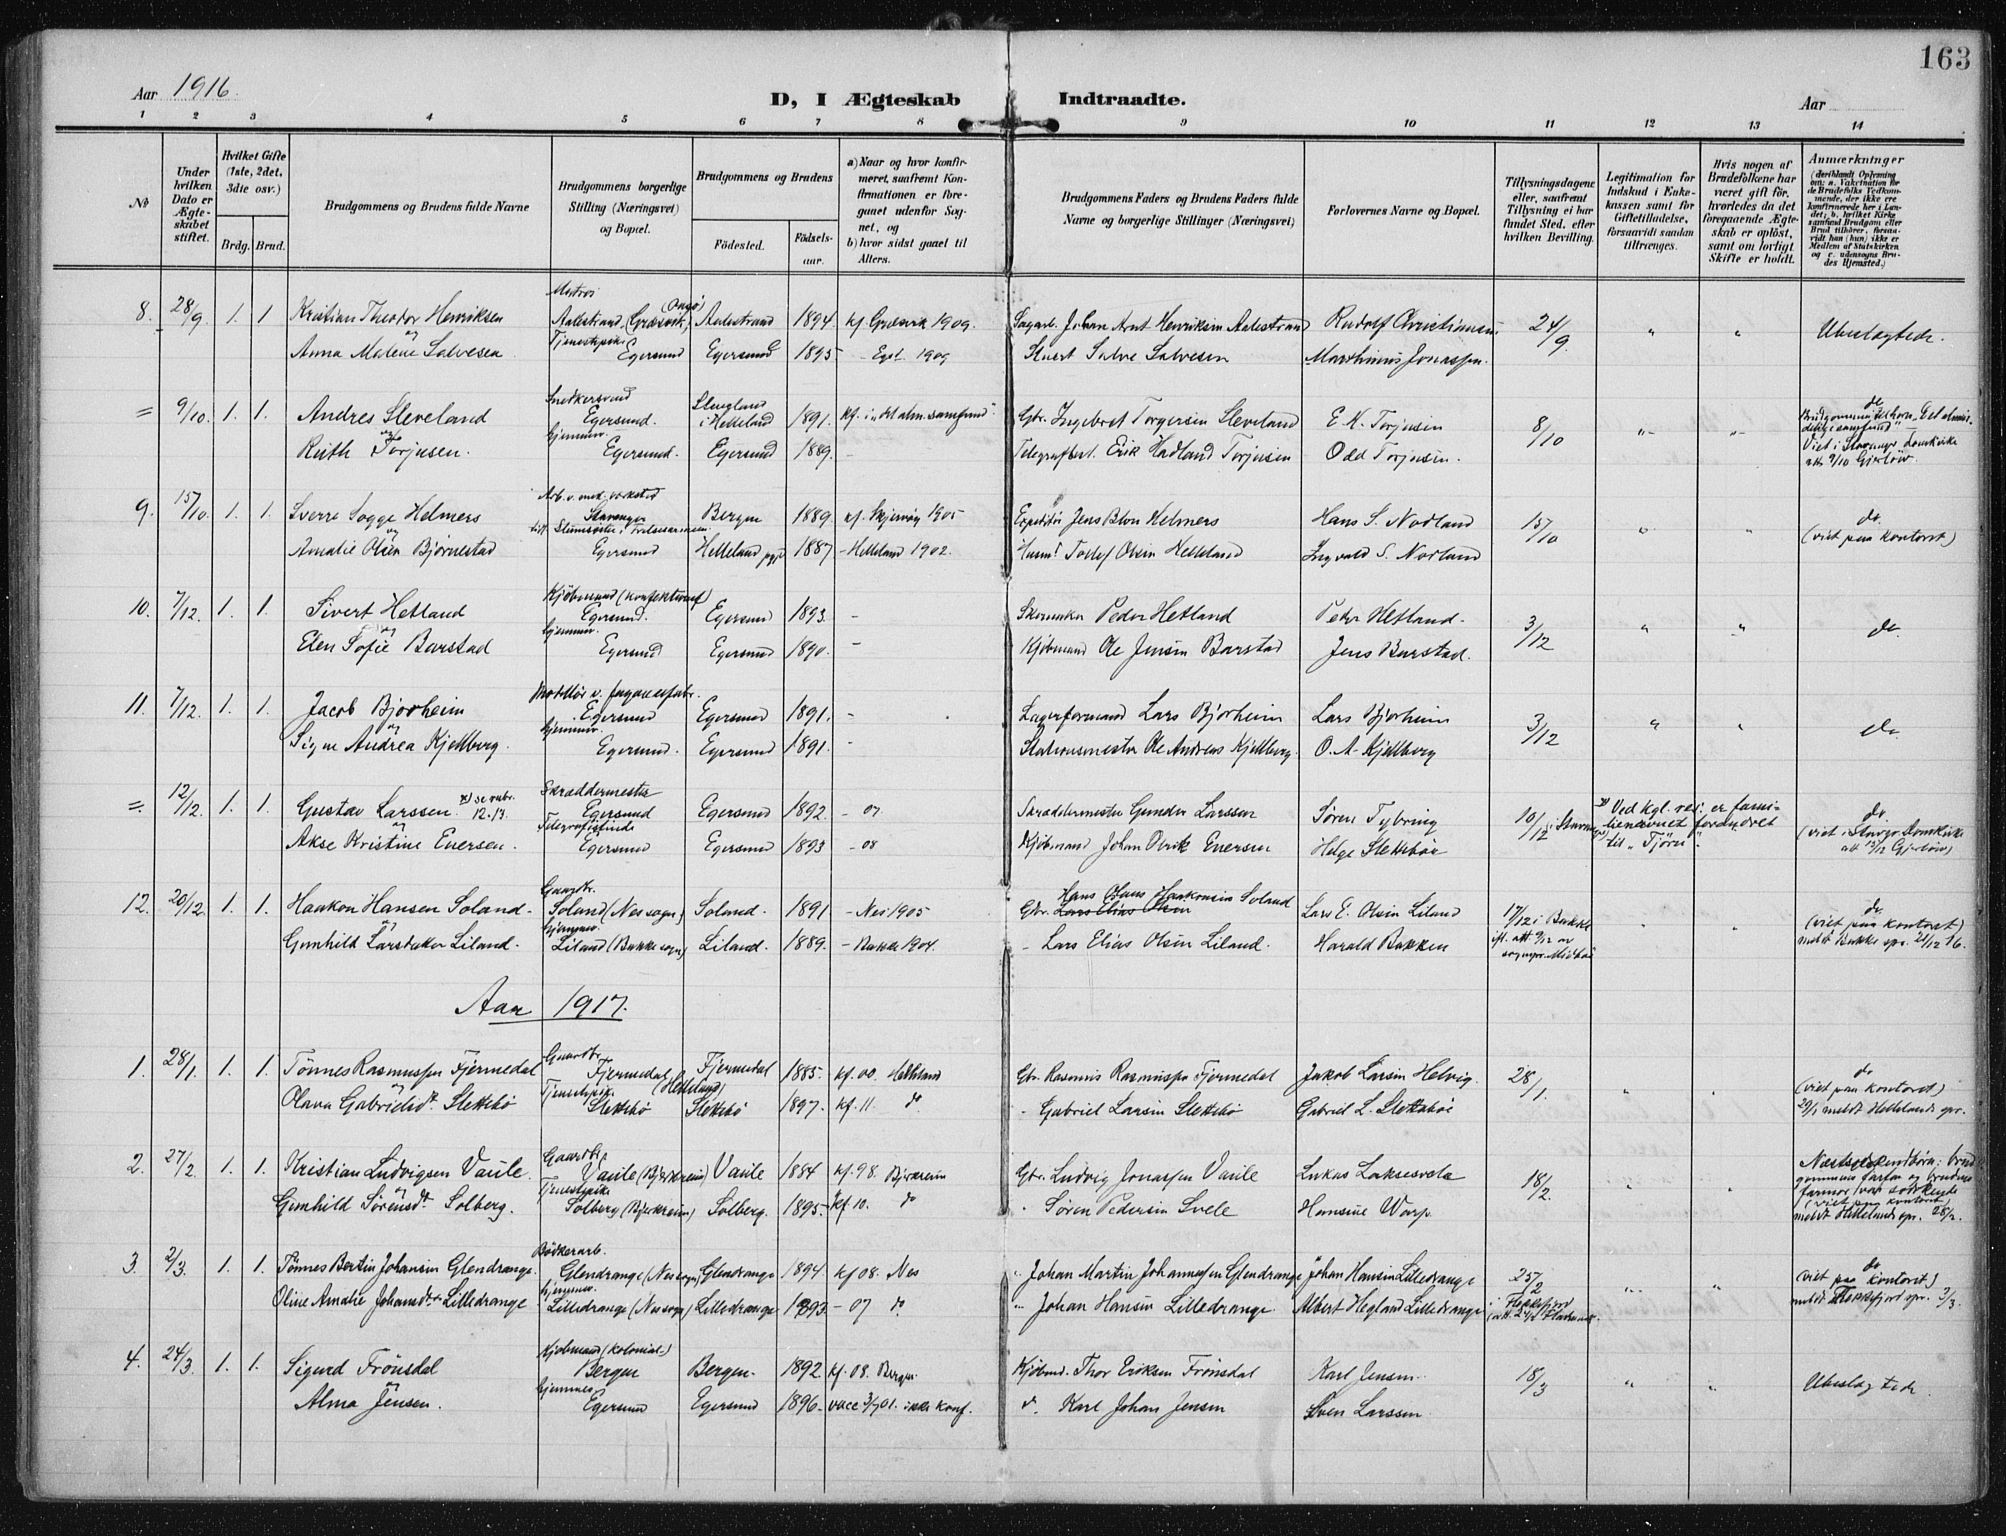 163
Aar 1916.
D, I Ægteskab Indtraadte.
Aar
1 2 3 4 5 6 7 8 9 10 11 12 13 14
No
Under hvilken Dato er Ægteskabet stiftet.
Hvilket Gifte (1ste, 2det, 3die osv.)
Brdg. Brud.
Brudgommens og Brudens fulde Navne
Brudgommens borgerlige Stilling (Næringsvei) og Bopæl.
Brudgommens og Brudens
Fødested. Fødselsaar.
a) Naar og hvor konfirmeret, saafremt Konfirmationen er foregaaet udenfor Sognet, og
b) hvor sidst gaaet til Alters.
Brudgommens Faders og Brudens Faders fulde Navne og borgerlige Stillinger (Næringsvei)
Forlovernes Navne og Bopæl.
Tillysningsdagene eller, saafremt Tillysning ei har fundet Sted, efter hvilken Bevilling.
Legitimation for Indskud i Enkekassen samt for Giftetilladelse, forsaavidt saadan tiltrænges.
Hvis nogen af Brudefolkene har været gift før, hvorledes da det foregaaende Ægteskab er opløst, samt om lovligt Skifte er holdt.
Anmærkninger
8. 28/9 1. 1 Kristian Theodor Henriksen Aalestrand (Græsvik) Aalestrand 1894 kf. Græsvik 1909. Johan Arnt Henriksen Aalestrand Rudolf Christiansen 24/9 " " Ubeslægtede.
og
Anna Malene Salvesen Tjenestepike Egersund Egersund 1895 - Egs. 1909 Stuert Salve Salvesen Marthinus Jonassen.
= 9/10. 1. 1. Andres Sleveland Snedkersvend Egersund. Slevgland i Helleland 1891. kf. i "det alm. samfund". Gbr. Ingebret Torgersen Sleveland E. K. Torjusen 8/10 "- "- do
og
Ruth Torjusen. hjemmev. Egersund. Egersund 1889. - Telegrafbest. Erik Hadland Torjusen Odd Torjusen. Viet i Stavanger Domkirke att 9/10 Gjerløw.
9. 15/10. 1. 1. Sverre Sogge Helmers Arb. v. mek. verksted Stavanger Bergen 1889. kf. Skjervøy 1905 Expeditør Jens Blom Helmers Hans S. Nodland 15/10 " " do
og
Amalie Olsen Bjørnestad Egersund Helleland pgd 1887 - Helleland 1902. Husm. Tollef Olsen Helleland Ingvald S. Nodland (viet paa kontoret)
10. 7/12. 1. 1. Sivert Hetland Kjøbmand (konfektions) Egersund. Egersund 1893. - Skomaker Peder Hetland Peder Hetland. 3/12 " " do
og
Elen Sofie Barstad hjemmev. Egersund Egersund 1890. - Kjøbmand Ole Jensen Barstad Jens Barstad.
11. 7/12. 1. 1. Jacob Bjorheim Modellør v. fayancefabr. Egersund Egersund 1891. - Lagerformand Lars Bjorheim Lars Bjorheim 3/12 " " do
og
Signe Andrea Kjellberg. hjemmev. Egersund. Egersund 1891. - Stationsmester Ole Andreas Kjellberg. O. A. Kjellberg
= 12/12. 1. 1. Gustav Larssen x) se rubr. 12.13. Skræddermester Egersund Egersund 1892. - 07 Skræddermester Gunder Larssen Søren Tybring 10/12 i Stavanger x) Ved kgl. res. er familienavnet forandret til "Tjørn". do
og
Akse Kristine Evensen. Telegrafistinde Egersund Egersund 1893 - 08 Kjøbmand Johan Olrik Evensen Helge Slettebøe (viet i Stavgr Domkirke att 13/12 Gjerløw)
12. 20/12. 1. 1. Haakon Hansen Soland. Gaardbr. Soland (Nes sogn) Soland. 1891 - Nes 1905 Gbr. Hans Olaus Haakonsen Soland Lars E. Olsen Liland 17/12 i Bakke " " do
Gunhild Larsdatter Liland. hjemmev. Liland (Bakke sogn) Liland. 1889. - Bakke 1904. - Lars Elias Olsen Liland. Harald Bakken (viet paa kontoret) meldt Bakke spr. 21/12 16.
Aar 1917.
1. 28/1. 1. 1. Tønnes Rasmussen Fjermedal Gaardbr. Fjermedal (Helleland) Fjermedal 1885. kf. 00. Helleland Gbr. Rasmus Rasmussen Fjermedal Jakob Larsen Helvig. 28/1. " " do
og
Olava Gabrielsdt. Slettebø Tjenestepike Slettebø Slettebø 1897. kf. 11. do - Gabriel Larsen Slettebø Gabriel L. Slettebøe (viet paa kontoret) 29/1 meldt Hellelands spr.
2. 27/2 1. 1. Kristian Ludvigsen Vaule. Gaardbr. Vaule (Bjerkreim) Vaule 1884 kf. 98. Bjerkreim Gbr. Ludvig Jonassen Vaule Lukas Laksesvela 18/2. " " Næstsødskendbørn: brudgommens farfar og brudens farmor var søskende
og
Gunhild Sørensdt. Solberg. Tjenestepike Solberg (Bjerkreim) Solberg. 1895. kf. 10. do - Søren Pedersen Svele Hansine Warp (viet paa kontoret) meldt Hellelands spr. 28/2.
3. 2/3. 1. 1. Tønnes Bertin Johansen Glendrange. Bødkerarb. Glendrange (Nes sogn) Glendrange 1894. kf 08. Nes " Johan Martin Johannessen Glendrange Johan Hansen Lilledrange 25/2 " " do
Oline Amalie Johansdt. Lilledrange hjemmev. Lilledrange (Nes sogn) Lilledrange 1893 - 07 do " Johan Hansen Lilledrange. Albert Hegland Lilledrange i Flekkefjord (viet paa kontoret) meldt Flekkefjord spr. 3/3.
4. 24/3. 1. 1. Sigurd Frønsdal Kjøbmand (kolonial.) Bergen Bergen. 1892. kf. 08. Bergen Kjøbmd. Thor Eriksen Frønsdal Karl Jensen 18/3 " " Ubeslægtede.
og
Alma Jensen. hjemmev. Egersund Egersund 1896. vacc 3/7 01. ikke konf. do. Karl Johan Jensen Sven Larssen.